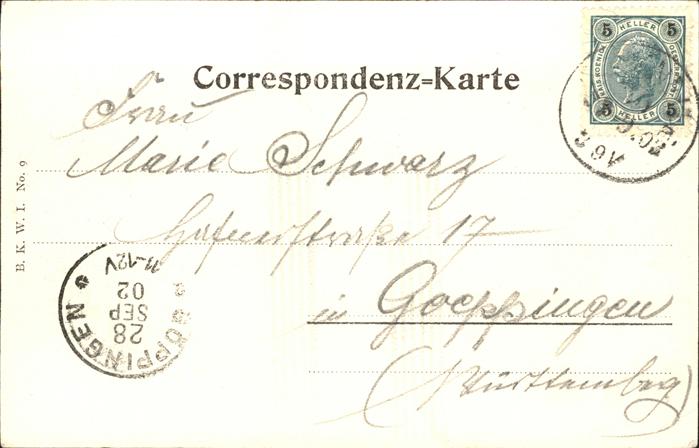 5 HELLER 5
KAIS. KOENIGL.
5 HELLER 5
02
Correspondenz=Karte
Frau
Marie Schwarz
Hafnerstraße 17
in Goeppingen
(Württemberg)
B. K. W. I. No. 9
GÖPPINGEN
28
SEP
02
11-12V